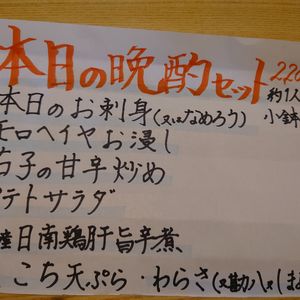 本日の晩酌セット 2,20
約1人
小鉢
本日のお刺身(又はなめろう)
モロヘイヤお浸し
茄子の甘辛炒め
ポテトサラダ
産日南鶏肝旨辛煮
こち天ぷら・わらさ(又勘八又しま